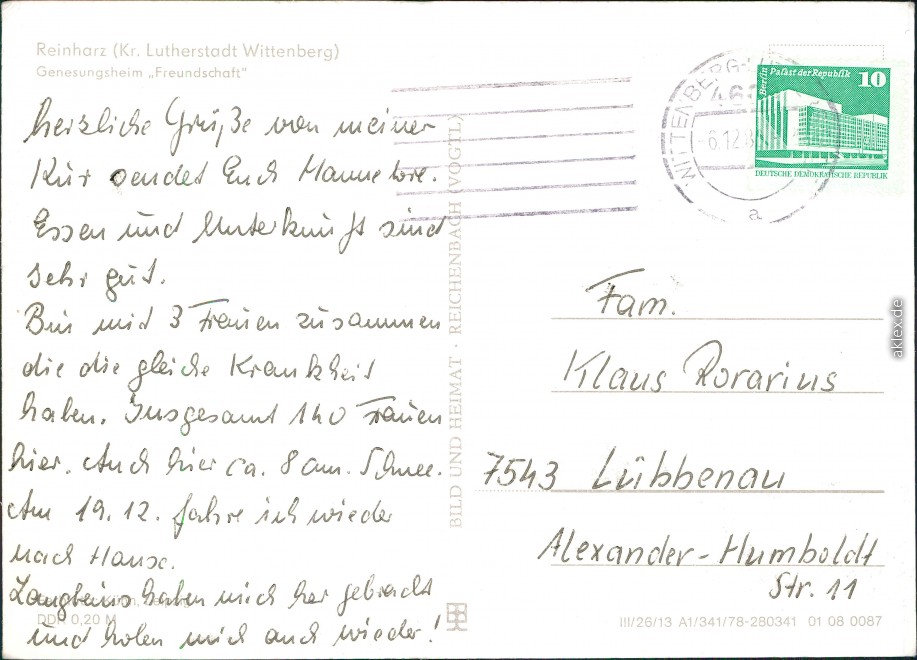 Reinharz (Kr. Lutherstadt Wittenberg)
Genesungsheim „Freundschaft"
herzliche Grüße von meiner
Kur sendet Euch Hannelore.
Essen und Unterkunft sind
sehr gut.
Bin mit 3 Frauen zusammen
die die gleiche Krankheit
haben. Insgesamt 140 Frauen
hier. Auch hier ca. 8 cm. Schnee.
Am 19.12. fahre ich wieder
nach Hause.
Langheins haben mich her gebracht
und holen mich auch wieder!
DDR 0,20 M
BILD UND HEIMAT · REICHENBACH (VOGTL)
WITTENBERG
6.12.8
a
Berlin Palast der Republik 10
DEUTSCHE DEMOKRATISCHE REPUBLIK
Fam.
Klaus Rorarius
7543 Lübbenau
Alexander-Humboldt
Str. 11
III/26/13 A1/341/78-280341 01 08 0087
aklex.de